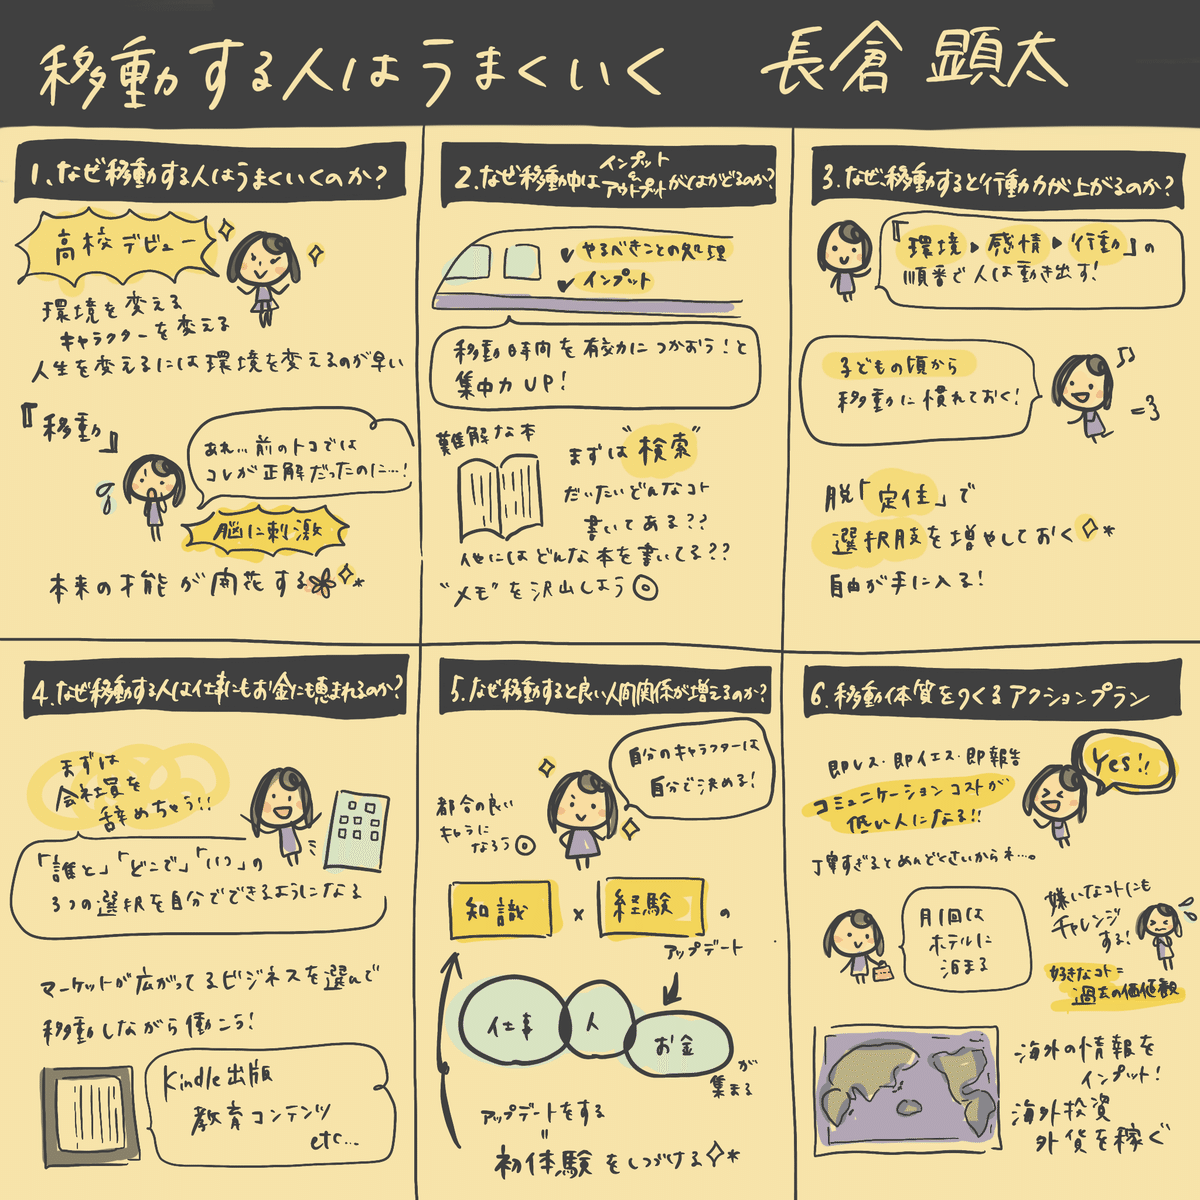 移動する人はうまくいく 長倉顕太
1.なぜ移動する人はうまくいくのか?
高校デビュー
環境を変える
キャラクターを変える
人生を変えるには環境を変えるのが早い
『移動』
あれ…前のトコでは
コレが正解だったのに…!
脳に刺激
本来の才能が開花する
2.なぜ移動中はインプット&アウトプットがはかどるのか?
やるべきことの処理
インプット
移動時間を有効につかおう!と
集中力UP!
難解な本
まずは"検索"
だいたいどんなコト
書いてある??
他にはどんな本を書いてる??
"メモ"を沢山しよう◎
3.なぜ、移動すると行動力が上がるのか?
『環境▶感情▶行動』の
順番で人は動き出す!
子どもの頃から
移動に慣れておく!
脱「定住」で
選択肢を増やしておく
自由が手に入る!
4.なぜ移動する人は仕事にもお金にも恵まれるのか?
まずは
会社員を
辞めちゃう!!
「誰と」「どこで」「いつ」の
3つの選択を自分でできるようになる
マーケットが広がってるビジネスを選んで
移動しながら働こう!
Kindle出版
教育コンテンツ
etc...
5.なぜ移動すると良い人間関係が増えるのか?
自分のキャラクターは
自分で決める!
都合の良い
キャラに
なろう◎
知識×経験の
アップデート
仕事
人
お金
が
集まる
アップデートをする
=
初体験をしつづける
6.移動体質をつくるアクションプラン
即レス・即イエス・即報告
Yes!!
コミュニケーションコストが
低い人になる!!
丁寧すぎるとめんどくさいからネ…。
月1回は
ホテルに
泊まる
嫌いなコトにも
チャレンジ
する!
好きなコト=
過去の価値観
海外の情報を
インプット!
海外投資
外貨を稼ぐ